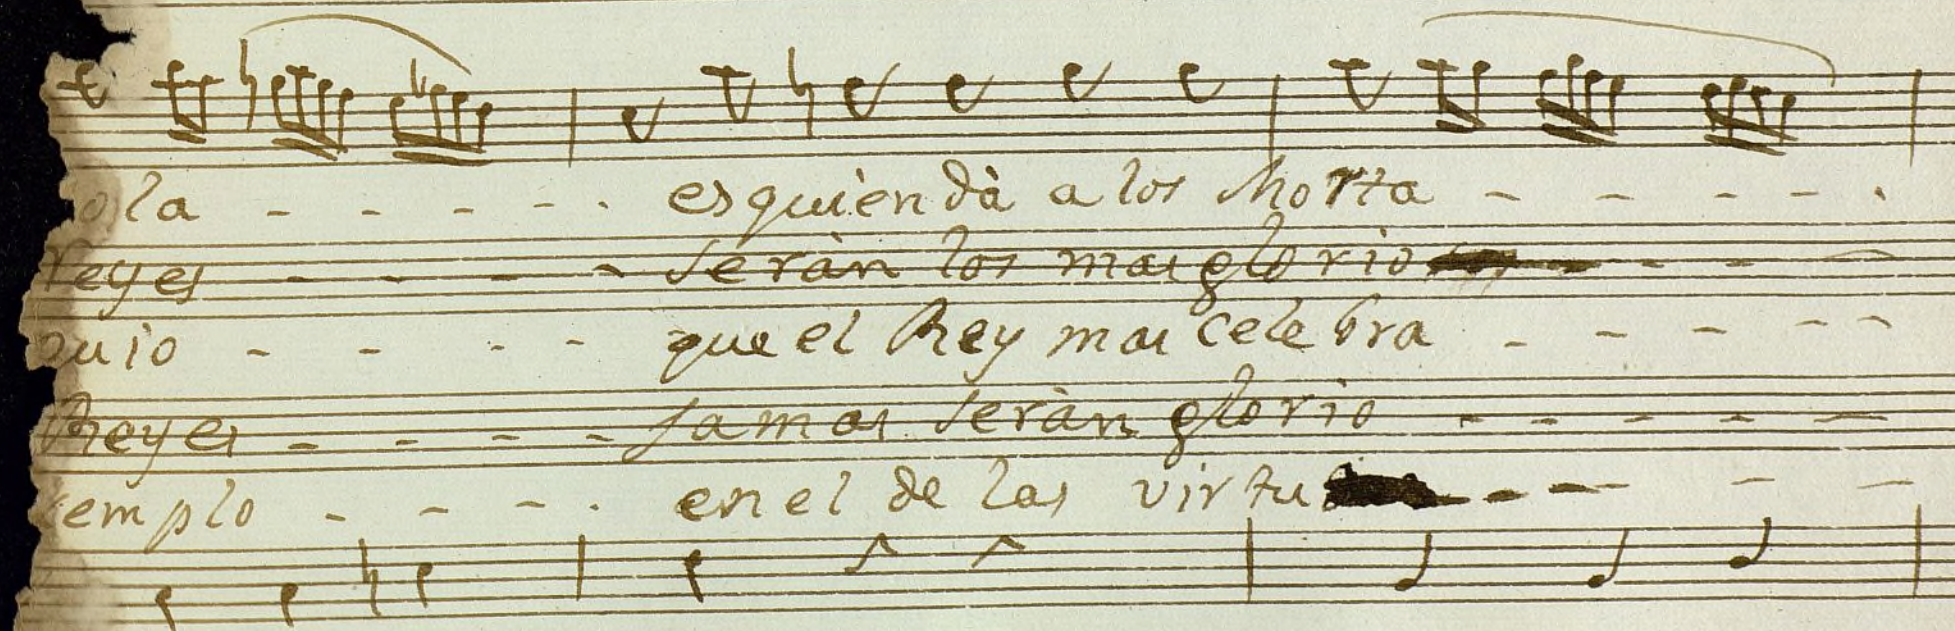 ola - - - - - . es quièn dà a los Morta - - - - - .
Reyes - - - - seràn los mas glorio - - - -
quio - - - - que el Rey mas celebra - - - - -
Reyes - - - - Jamas seràn glorio - - - - -
templo - - - - . en el de las virtu - - - - -